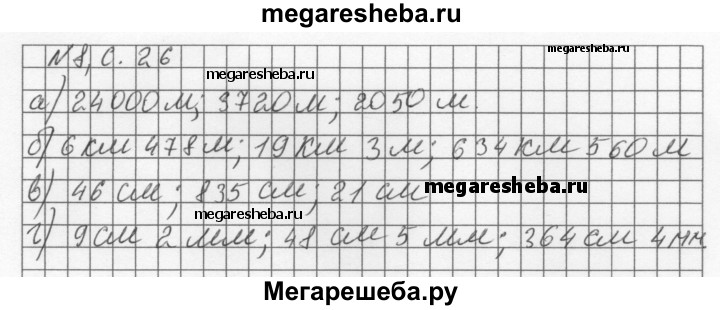 megaresheba.ru
N8, с. 26
megaresheba.ru
megaresheba.ru
а) 24000 м; 3720 м; 2050 м.
б) 6 км 478 м; 19 км 3 м; 634 км 560 м
в) 46 см; 835 см; 21 см
megaresheba.ru
megaresheba.ru
г) 9 см 2 мм; 48 см 5 мм; 364 см 4 мм
Мегарешеба.ру